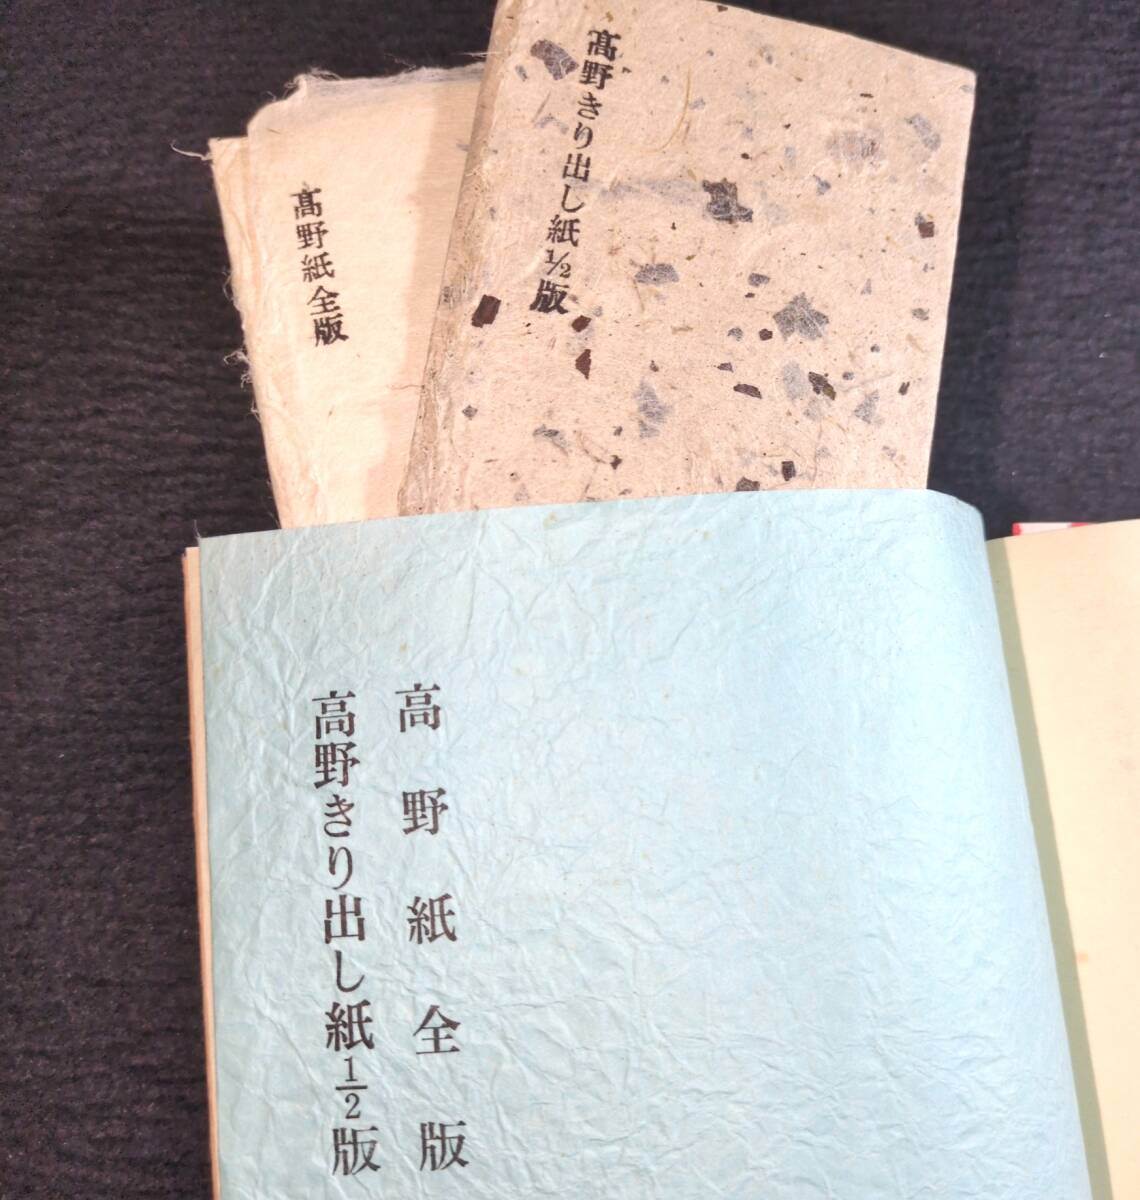 髙野きり出し紙½版
髙野紙全版
高野紙全版
高野きり出し紙½版